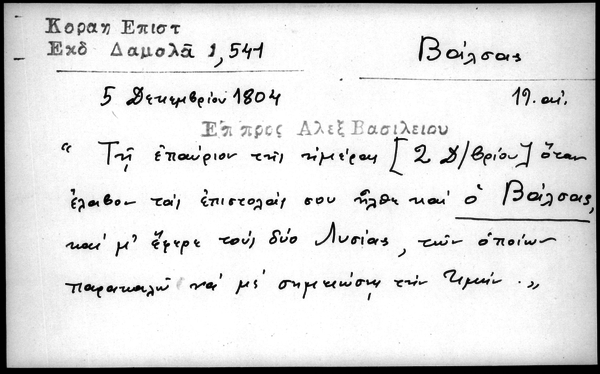 Κοραη Επιστ
Εκδ Δαμαλᾶ 1,541
Βάλσας
5 Δεκεμβρίου 1804
19. αἰ.
Επ προς Αλεξ Βασιλειου
" Τῇ ἐπαύριον τῆς ἡμέρας [2 Δ/βρίου] ὅταν
ἔλαβον τάς ἐπιστολάς σου ἦλθε καί ὁ Βάλσας,
καί μ' ἔφερε τούς δύο Λυσίας, τῶν ὁποίων
παρακαλῶ νά μέ σημειώσῃς τήν τιμήν."